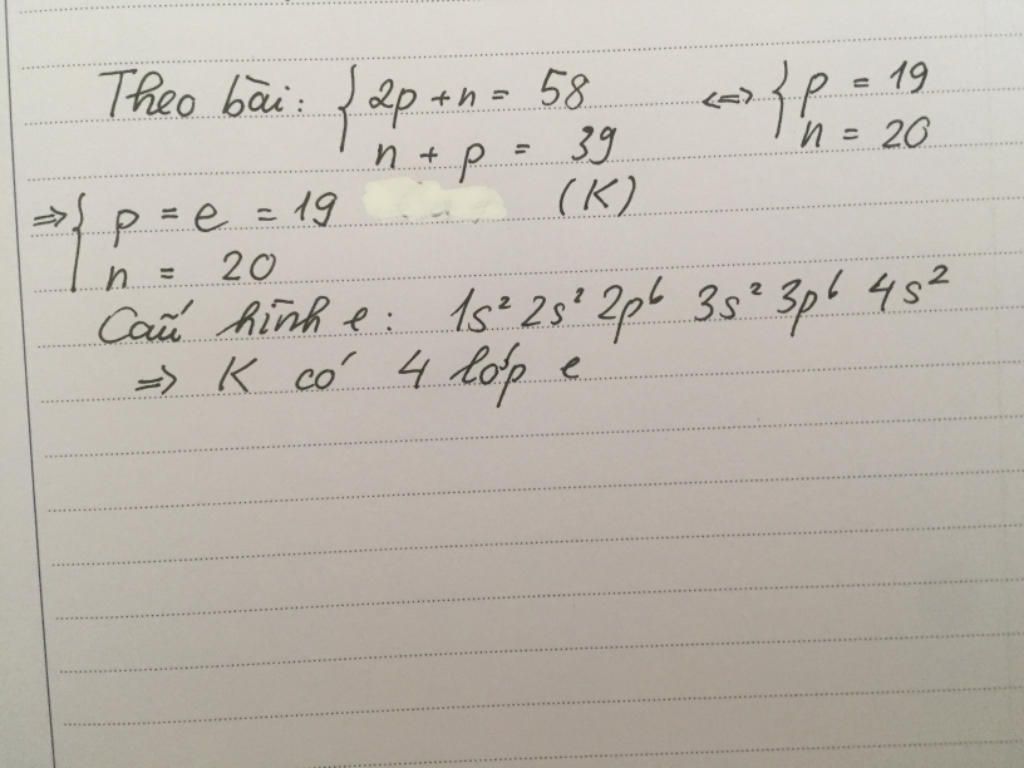 Theo bài: { 2p + n = 58 <=> { p = 19
n + p = 39 n = 20
=> { p = e = 19 (K)
n = 20
Cấu hình e: 1s² 2s² 2p⁶ 3s² 3p⁶ 4s²
=> K có 4 lớp e